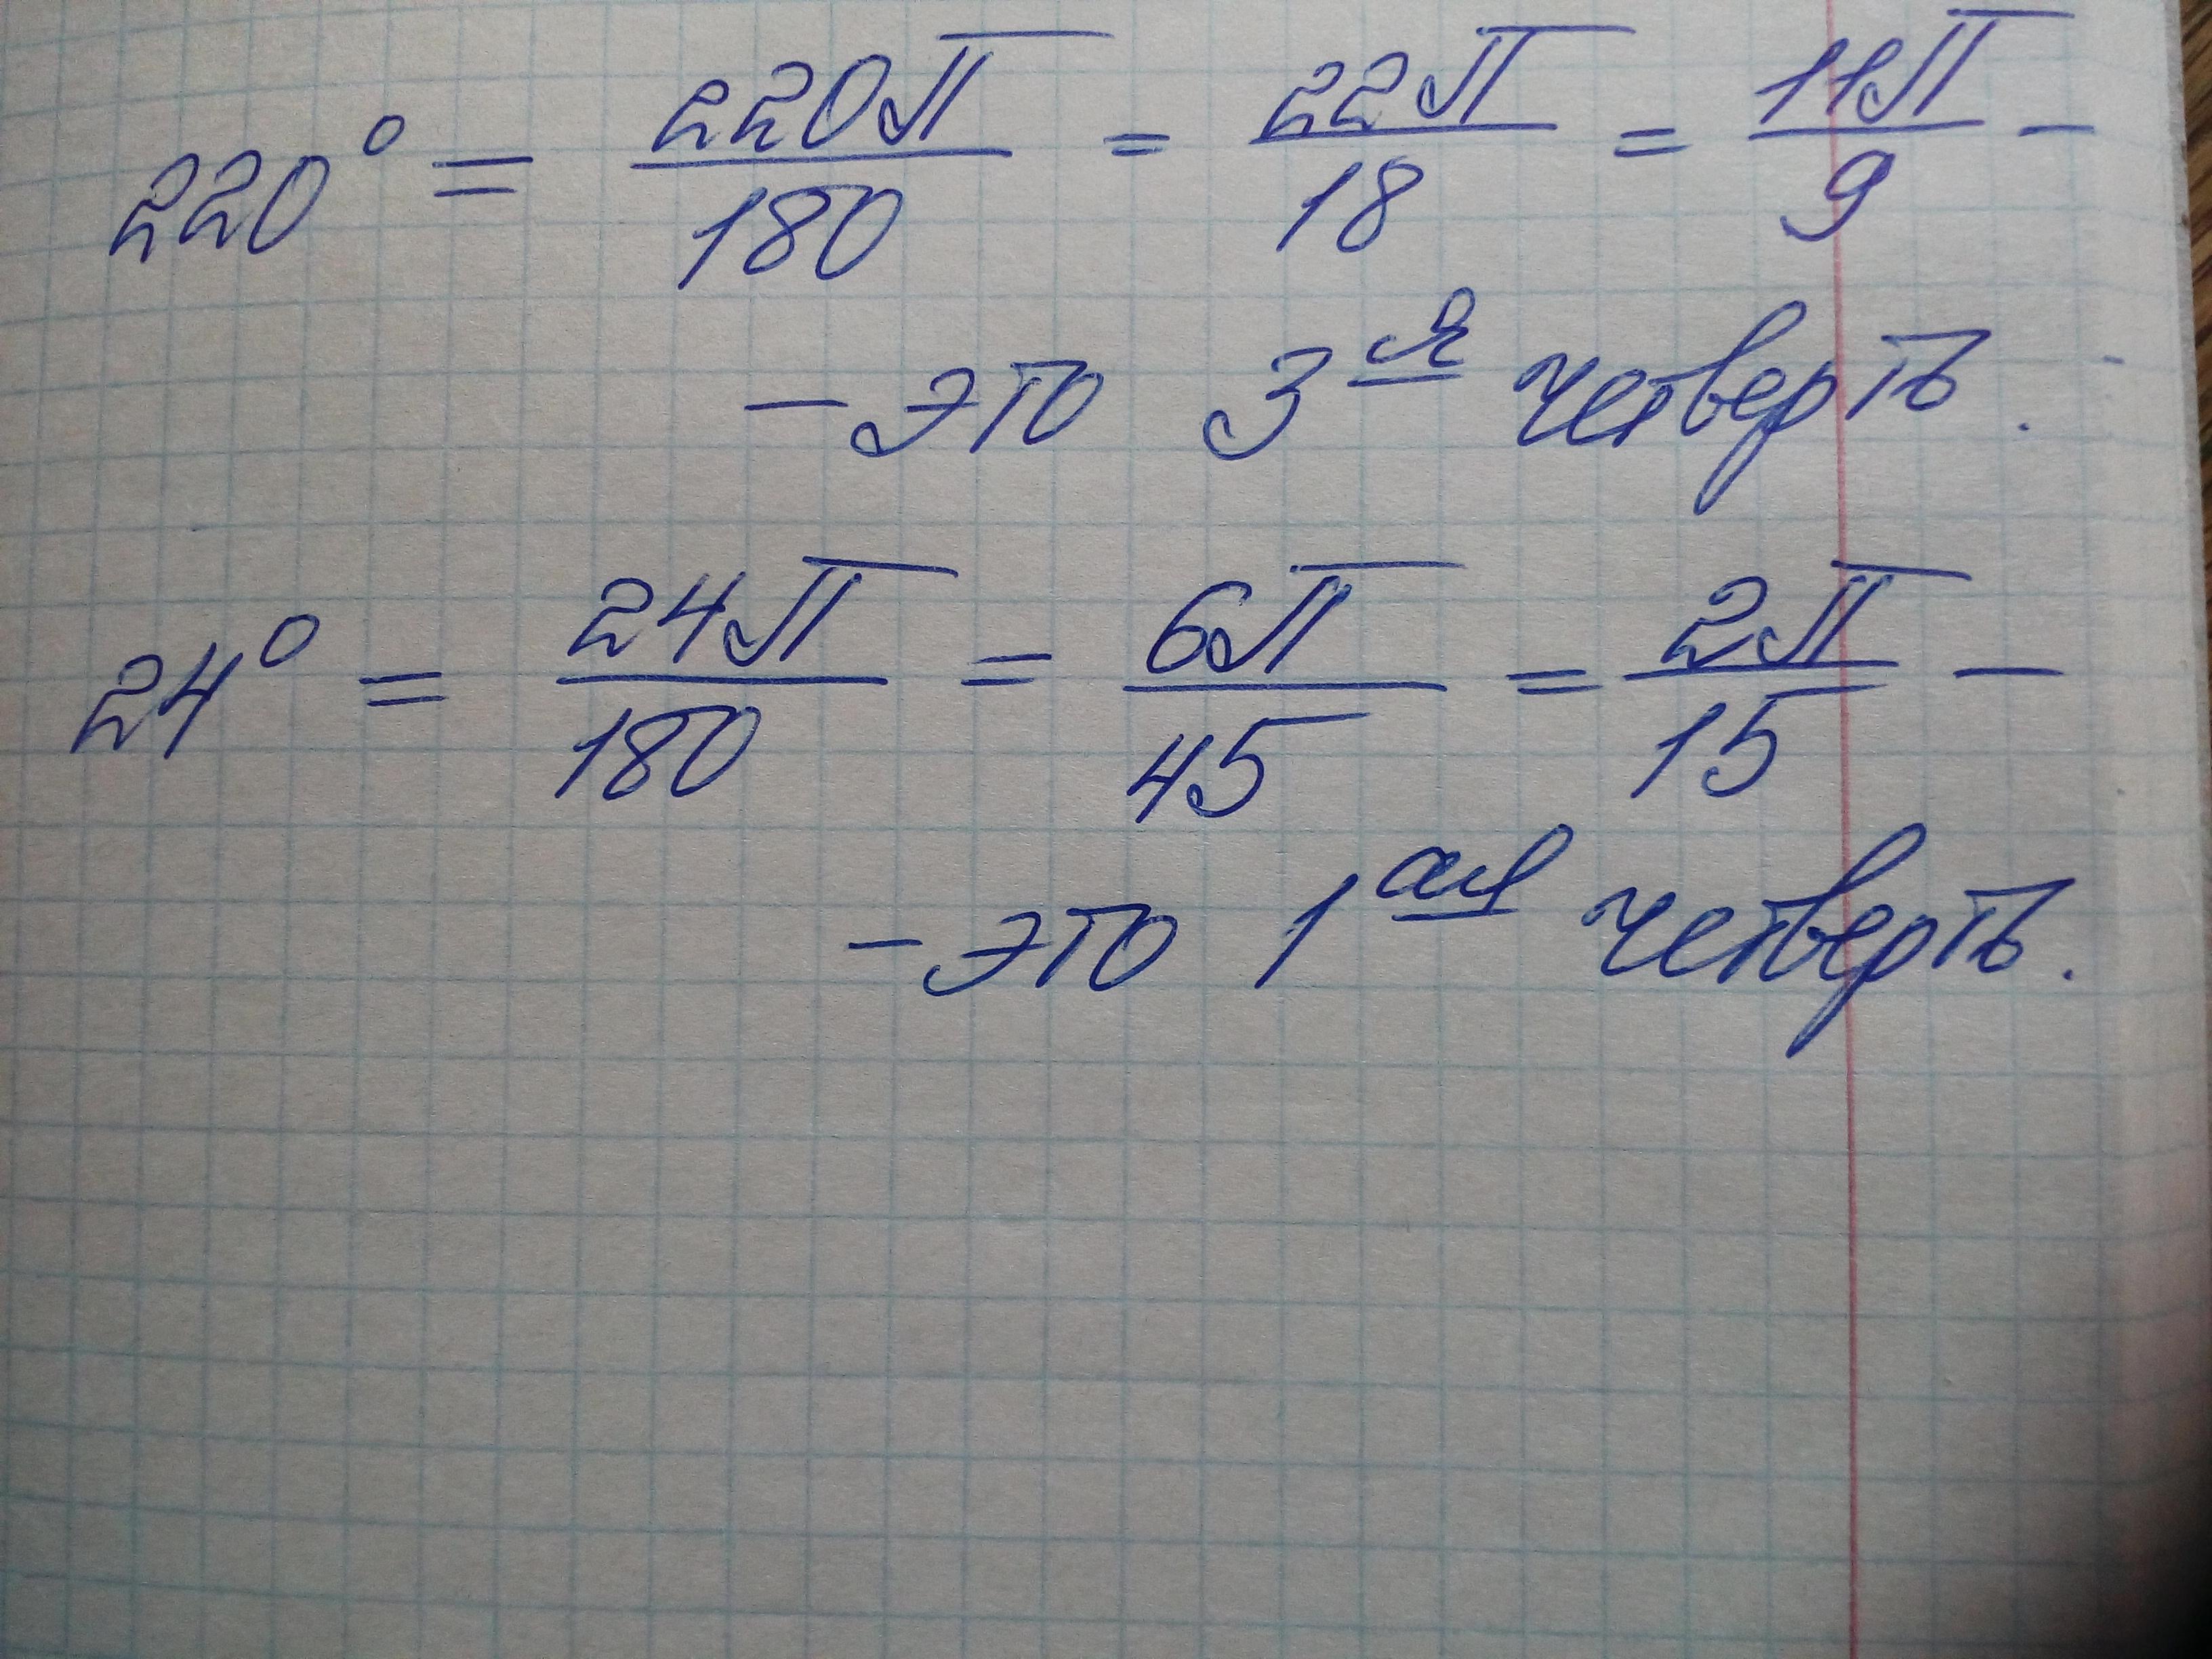 220° = 220π/180 = 22π/18 = 11π/9 –
– это 3 я четверть.
24° = 24π/180 = 6π/45 = 2π/15 –
– это 1 ая четверть.